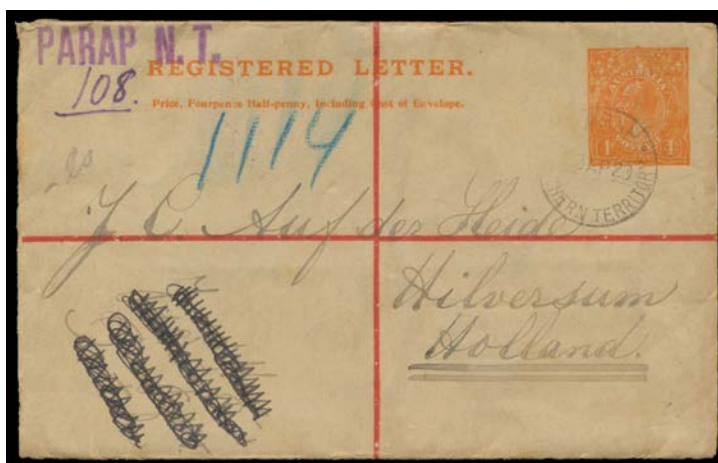 PARAP N.T.
108.
REGISTERED LETTER.
Price, Fourpence Half-penny, Including Cost of Envelope.
AUSTRALIA
1114
J C Auf der Heide
Hilversum
Holland.